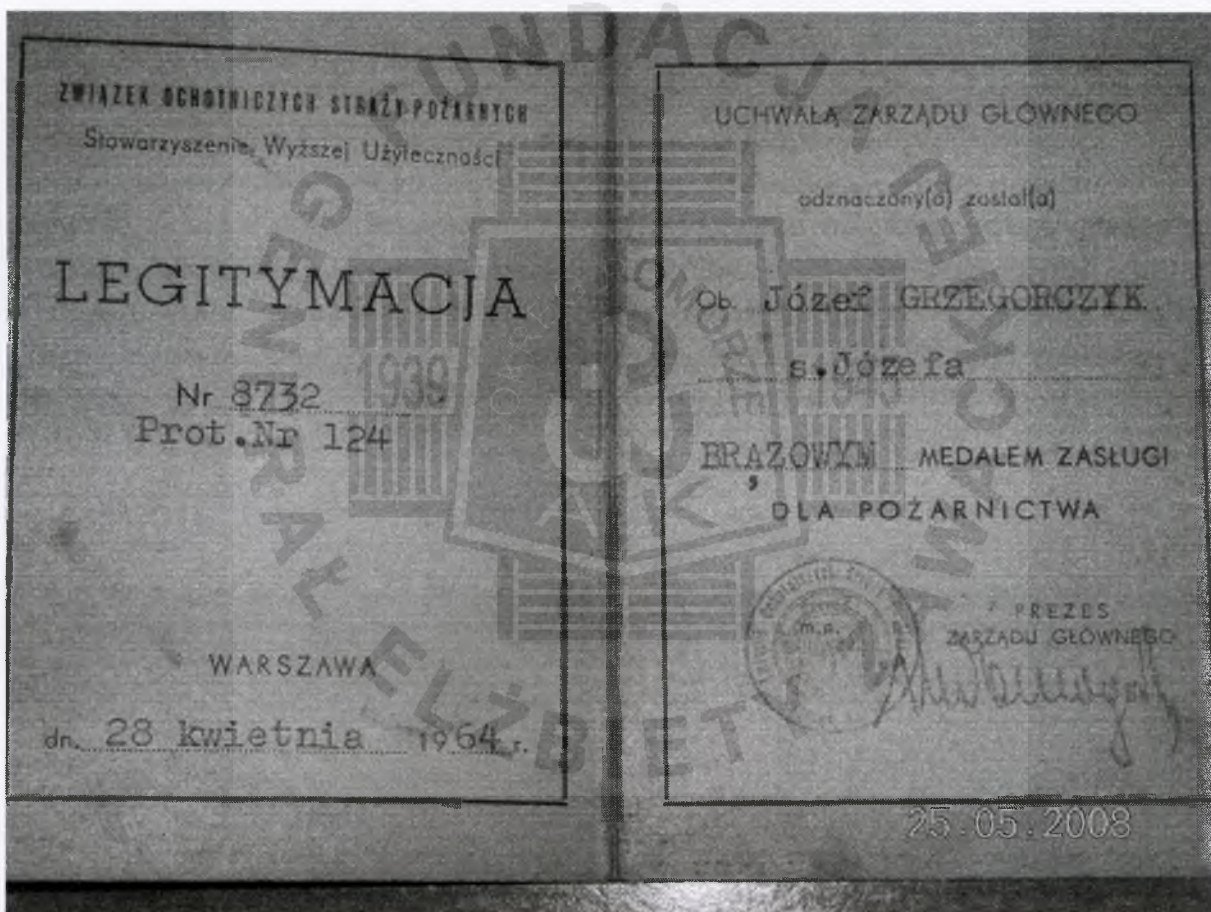 ZWIĄZEK OCHOTNICZYCH STRAŻY POŻARNYCH
Stowarzyszenie Wyższej Użyteczności
LEGITYMACJA
Nr 8732
Prot.Nr 124
WARSZAWA
dn. 28 kwietnia 1964 r.
UCHWAŁĄ ZARZĄDU GŁÓWNEGO
odznaczony(a) został(a)
Ob. Józef GRZEGORCZYK
s.Józefa
BRĄZOWYM MEDALEM ZASŁUGI
DLA POŻARNICTWA
m.p.
PREZES
ZARZĄDU GŁÓWNEGO
25.05.2008
FUNDACJA
GENERAŁ ELŻBIETY ZAWACKIEJ
POMORZE
1939
1945
AK